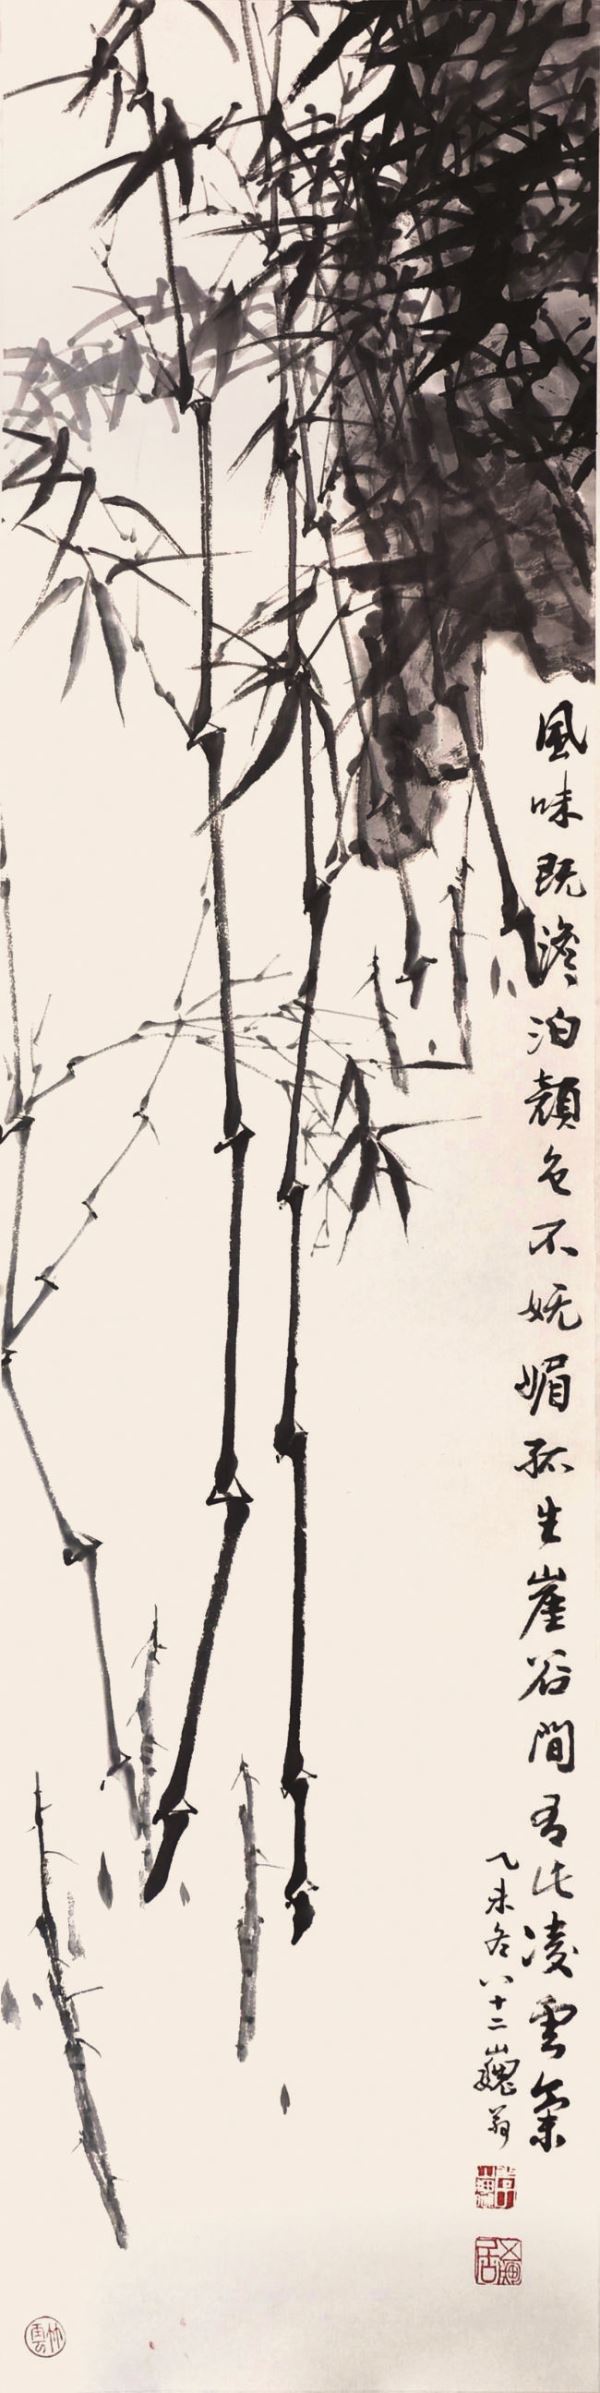 風味既澹泊顏色不妩媚孤生崖谷間有此凌雲氣
乙未冬八十二巍翁
竹雲